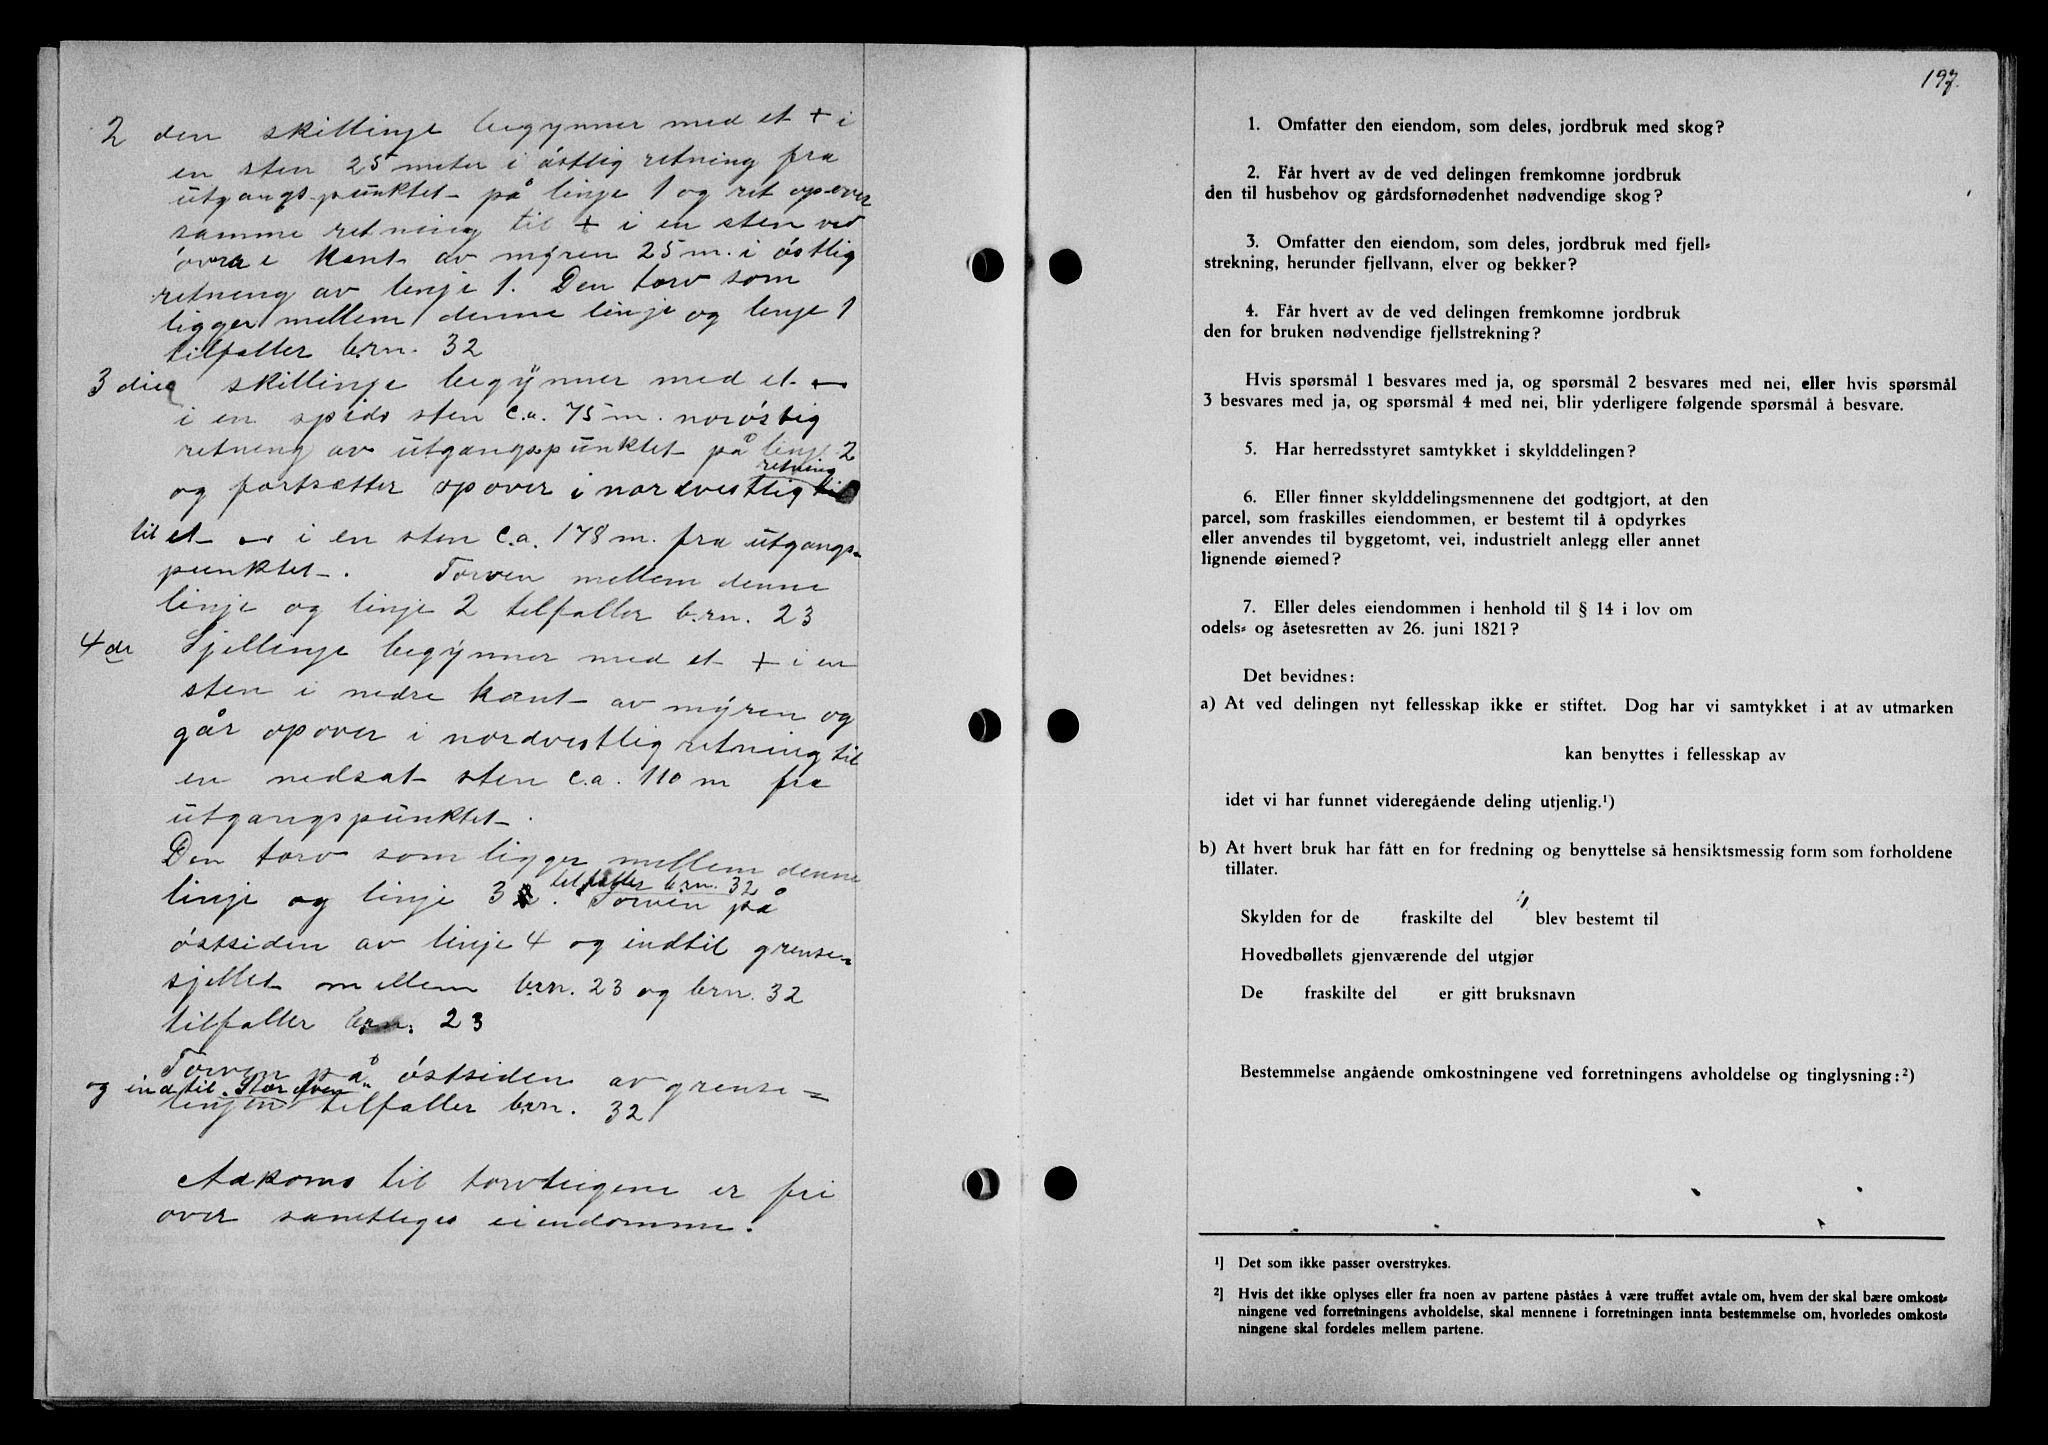 2 den skillinje begynner med et + i
en sten 25 meter i östlig retning fra
utgangspunktet på linje 1 og ret opover
samme retning til + i en sten ved
övra kant av myren 25 m. i östlig
retning av linje 1. Den torv som
ligger mellem denne linje og linje 1
tilfaller b.rn. 32
3 die skillinje begynner med et
i en spids sten c.a. 75 m. norostig
retning av utgangspunktet på linje 2
retning
og fortsætter opover i nordvestlig
til et i en sten c.a. 178 m. fra utgangs-
punktet. Torven mellem denne
linje og linje 2 tilfaller b.rn. 23
4 de Sjellinje begynner med et + i en
sten i nedre kant av myren og
går opover i nordvestlig retning til
en nedsat sten c.a. 110 m fra
utgangspunktet.
Den torv som ligger mellem denne
tilfaller b.rn. 32
linje og linje 3. Torven på
östsiden av linje 4 og indtil grense-
sjellet mellem brn. 23 og brn. 32
tilfaller brn. 23
Torven på östsiden av grense=
og indtil Storelven
linjen tilfaller brn. 32
Adkoms til torvteigene er fri
over samtliges eiendomme.
197.
1. Omfatter den eiendom, som deles, jordbruk med skog?
2. Får hvert av de ved delingen fremkomne jordbruk
den til husbehov og gårdsfornødenhet nødvendige skog?
3. Omfatter den eiendom, som deles, jordbruk med fjell-
strekning, herunder fjellvann, elver og bekker?
4. Får hvert av de ved delingen fremkomne jordbruk
den for bruken nødvendige fjellstrekning?
Hvis spørsmål 1 besvares med ja, og spørsmål 2 besvares med nei, eller hvis spørsmål
3 besvares med ja, og spørsmål 4 med nei, blir yderligere følgende spørsmål å besvare.
5. Har herredsstyret samtykket i skylddelingen?
6. Eller finner skylddelingsmennene det godtgjort, at den
parcel, som fraskilles eiendommen, er bestemt til å opdyrkes
eller anvendes til byggetomt, vei, industrielt anlegg eller annet
lignende øiemed?
7. Eller deles eiendommen i henhold til § 14 i lov om
odels- og åsetesretten av 26. juni 1821?
Det bevidnes:
a) At ved delingen nyt fellesskap ikke er stiftet. Dog har vi samtykket i at av utmarken
kan benyttes i fellesskap av
idet vi har funnet videregående deling utjenlig.¹)
b) At hvert bruk har fått en for fredning og benyttelse så hensiktsmessig form som forholdene
tillater.
Skylden for de fraskilte del blev bestemt til
Hovedbøllets gjenværende del utgjør
De fraskilte del er gitt bruksnavn
Bestemmelse angående omkostningene ved forretningens avholdelse og tinglysning:²)
¹] Det som ikke passer overstrykes.
²] Hvis det ikke oplyses eller fra noen av partene påståes å være truffet avtale om, hvem der skal bære omkost-
ningene ved forretningens avholdelse, skal mennene i forretningen innta bestemmelse om, hvorledes omkost-
ningene skal fordeles mellem partene.